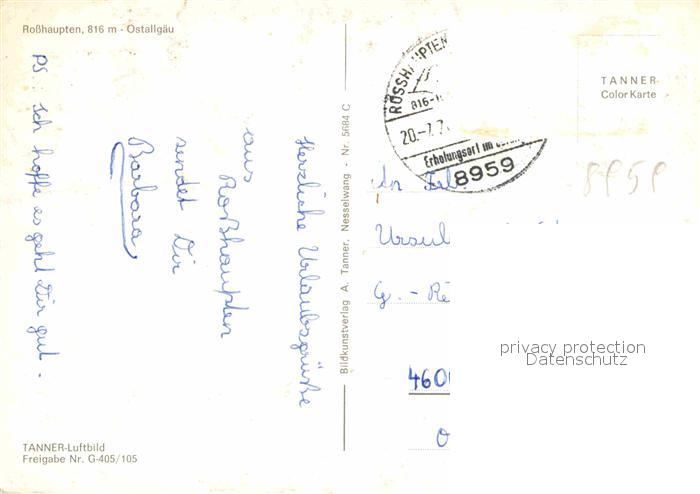 Roßhaupten, 816 m - Ostallgäu
Herzliche Urlaubsgrüße
aus
Roßhaupten
sendet Dir
Barbara
PS: Ich hoffe es geht Dir gut.
TANNER-Luftbild
Freigabe Nr. G-405/105
Bildkunstverlag A. Tanner, Nesselwang - Nr. 5684 C
ROSSHAUPTEN
816
20.-7.7
Erholungsort im
8959
TANNER-
Color Karte
8959
An
Ursul
G.-Re
460
O
privacy protection
Datenschutz